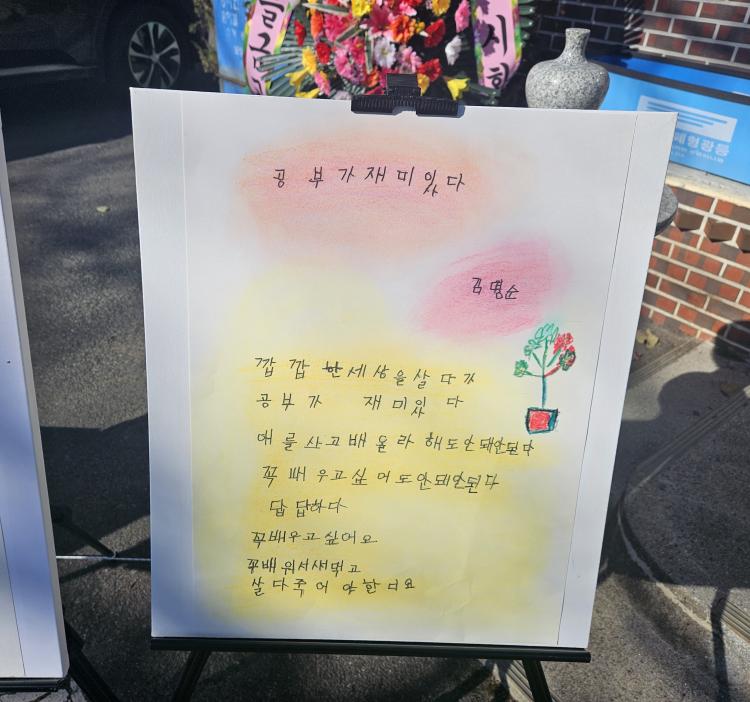 공부가재미있다
김명순
깝깝한세상을살다가
공부가 재미있다
애를사고배울라해도안돼안된다
꼭배우고싶어도안돼안된다
답답하다
꼭배우고싶어요
꼭배워서써먹고
살다죽어야한디요